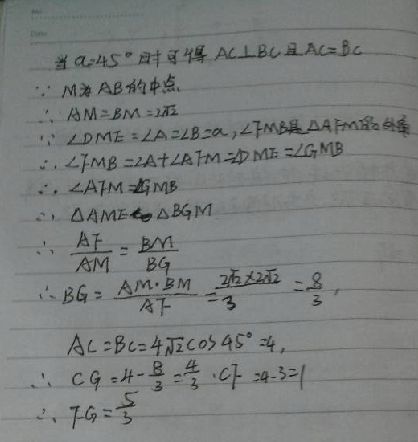 当α=45°时可得 AC⊥BC且AC=BC
∵ M为AB的中点
∴ AM=BM=2√2
∵ ∠DME=∠A=∠B=α,∠FMB是△AFM的外角
∴ ∠FMB=∠A+∠AFM=∠DME=∠GMB
∴ ∠AFM=∠GMB
∴ △AME∽△BGM
∴ AF/AM = BM/BG
∴ BG = AM·BM/AF = 2√2×2√2/3 = 8/3,
AC=BC=4√2cos45°=4,
∴ CG=4-8/3=4/3 . CF=4-3=1
∴ FG=5/3